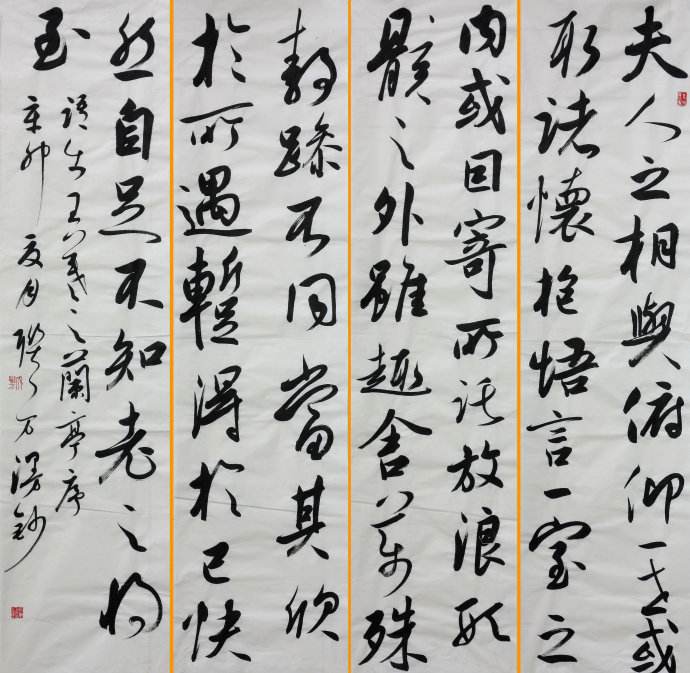 夫人之相與俯仰一世或
取諸懷抱悟言一室之
内或因寄所託放浪形
骸之外雖趣舍萬殊
静躁不同當其欣
於所遇暫得於己快
然自足不知老之將
至
語出王羲之蘭亭序
辛卯夏月 万漫鈔